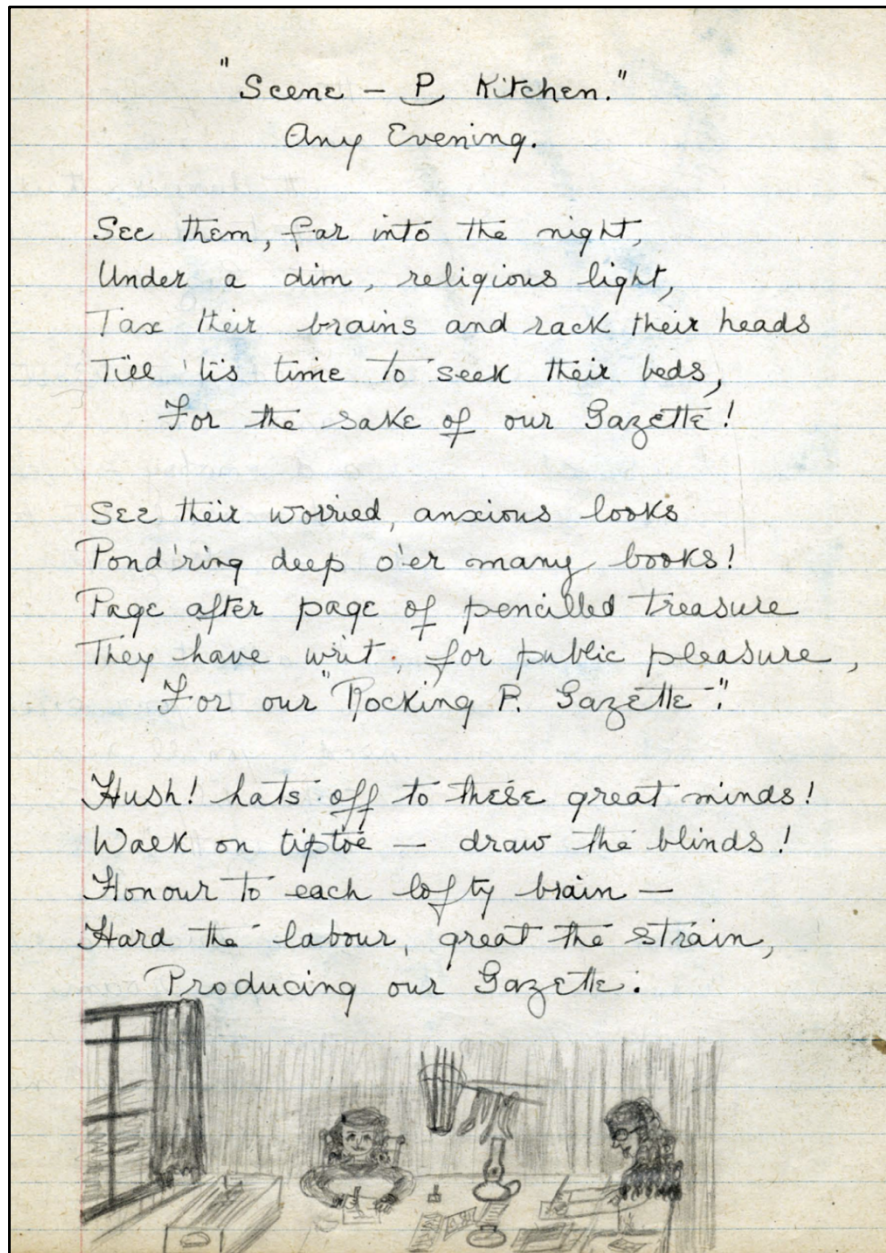 "Scene - P Kitchen."
Any Evening.
See them, far into the night,
Under a dim, religious light,
Tax their brains and rack their heads
Till 'tis time to seek their beds,
For the sake of our Gazette!
See their worried, anxious looks
Pond'ring deep o'er many books!
Page after page of pencilled treasure
They have writ, for public pleasure,
For our "Rocking P. Gazette".
Hush! hats off to these great minds!
Walk on tiptoe - draw the blinds!
Honour to each lofty brain -
Hard the labour, great the strain,
Producing our Gazette.